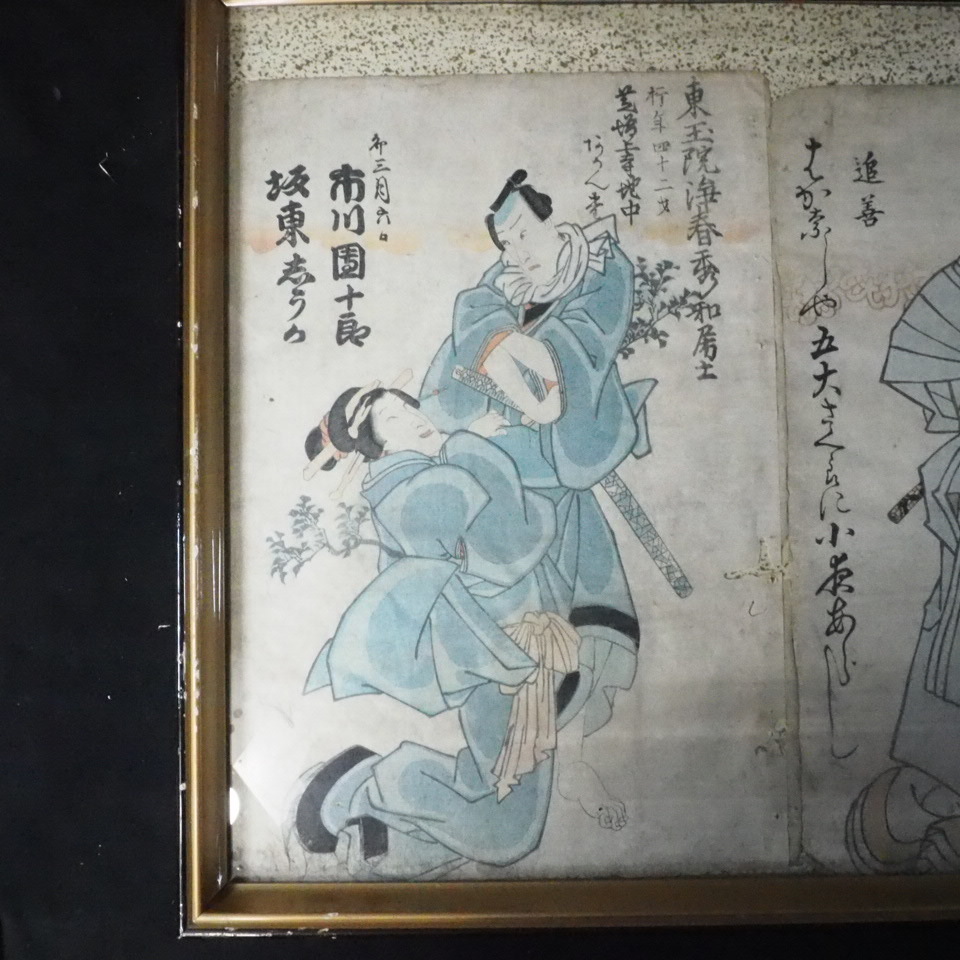 追善
はかなしや五大さくらに小夜あらし
東玉院浄春秀和居士
行年四十二才
芝増上寺地中
卯三月六日
市川團十郎
坂東志うか